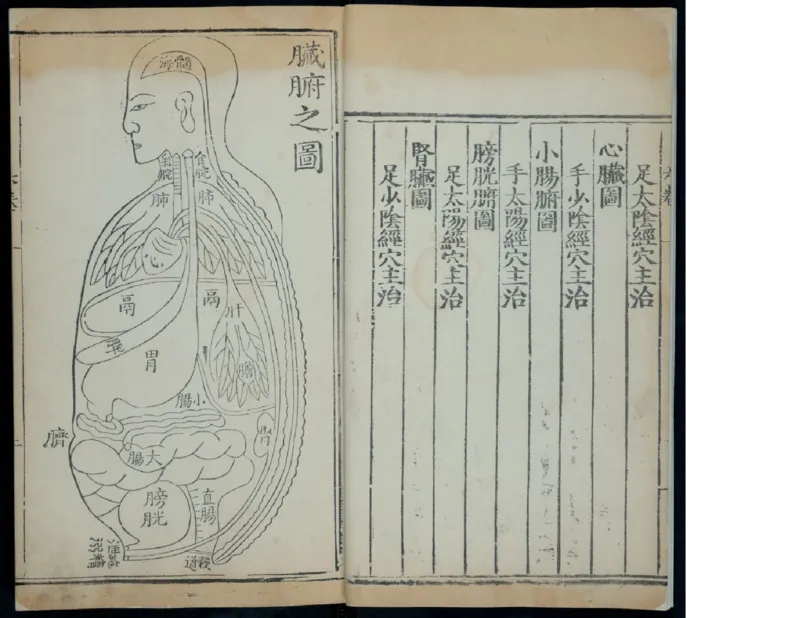 足太陰經穴主治
心臟圖
手少陰經穴主治
小腸腑圖
手太陽經穴主治
膀胱腑圖
足太陽經穴主治
腎臟圖
足少陰經穴主治
臟腑之圖
髓海
食脘
肺
肺
心
鬲
鬲
肝
脾
胃
膽
小腸
腎
臍
大腸
膀胱
直腸
穀道